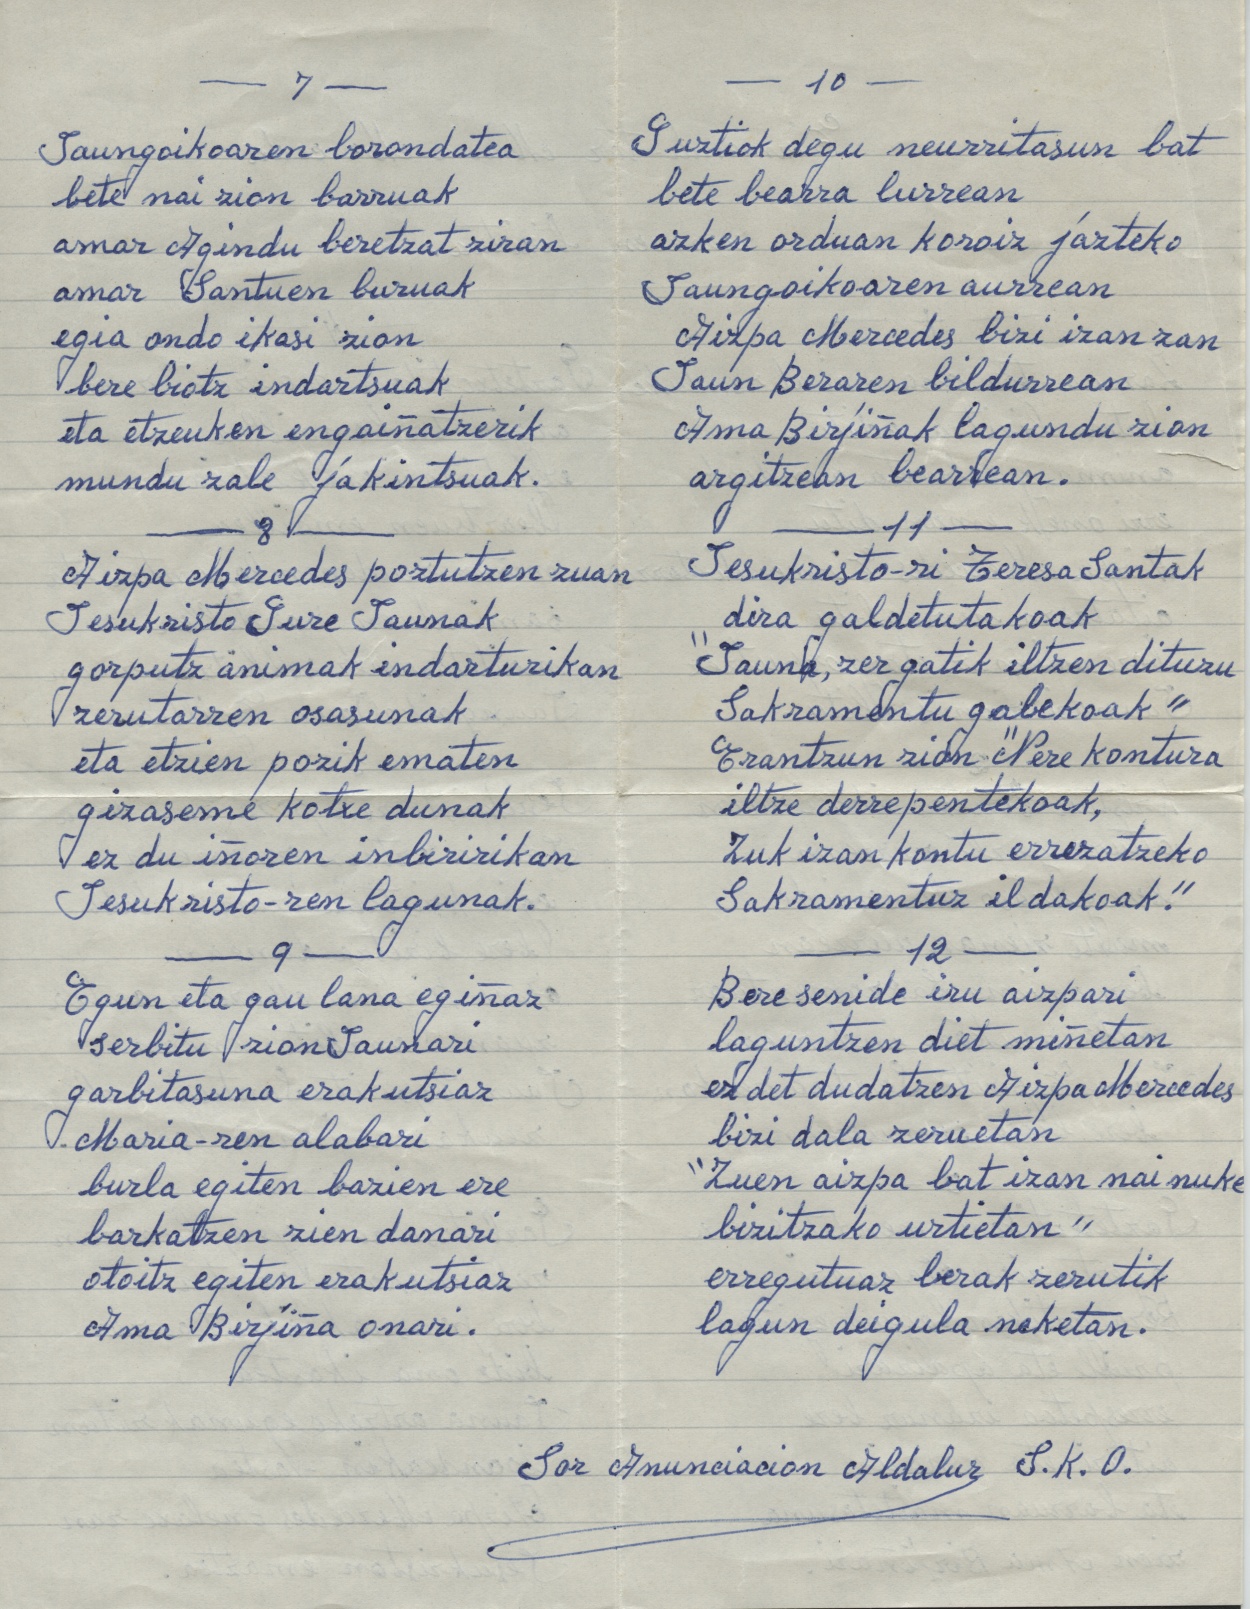 — 7 —
Jaungoikoaren borondatea
bete nai zion barruak
amar Agindu beretzat ziran
amar Santuen buruak
egia ondo ikasi zion
bere biotz indartsuak
eta etzeuken engaiñatzerik
mundu zale jakintsuak.
— 8 —
Aizpa Mercedes poztutzen zuan
Jesukristo Gure Jaunak
gorputz animak indarturikan
zerutarren osasunak
eta etzien pozik ematen
gizaseme kotxe dunak
ez du iñoren inbiririkan
Jesukristo-ren lagunak.
— 9 —
Egun eta gau lana egiñaz
serbitu zion Jaunari
garbitasuna erakutsiaz
Maria-ren alabari
burla egiten bazien ere
barkatzen zien danari
otoitz egiten erakutsiaz
Ama Birjiña onari.
— 10 —
Guztiok degu neurritasun bat
bete bearra lurrean
azken orduan koroiz jazteko
Jaungoikoaren aurrean
Aizpa Mercedes bizi izan zan
Jaun Beraren bildurrean
Ama Birjiñak lagundu zion
argitzean bearrean.
— 11 —
Jesukristo-ri Teresa Santak
dira galdetutakoak
"Jauna, zergatik iltzen dituzu
Sakramentu gabekoak"
Erantzun zion "Nere kontura
iltze derrepentekoak,
Zuk izan kontu errezatzeko
Sakramentuz il dakoak."
— 12 —
Bere senide iru aizpari
laguntzen diet miñetan
ez det dudatzen Aizpa Mercedes
bizi dala zeruetan
"Zuen aizpa bat izan nai nuke
bizitzako urtietan"
erregutuaz berak zerutik
lagun deigula neketan.
Sor Anunciacion Aldaluz S.K.O.